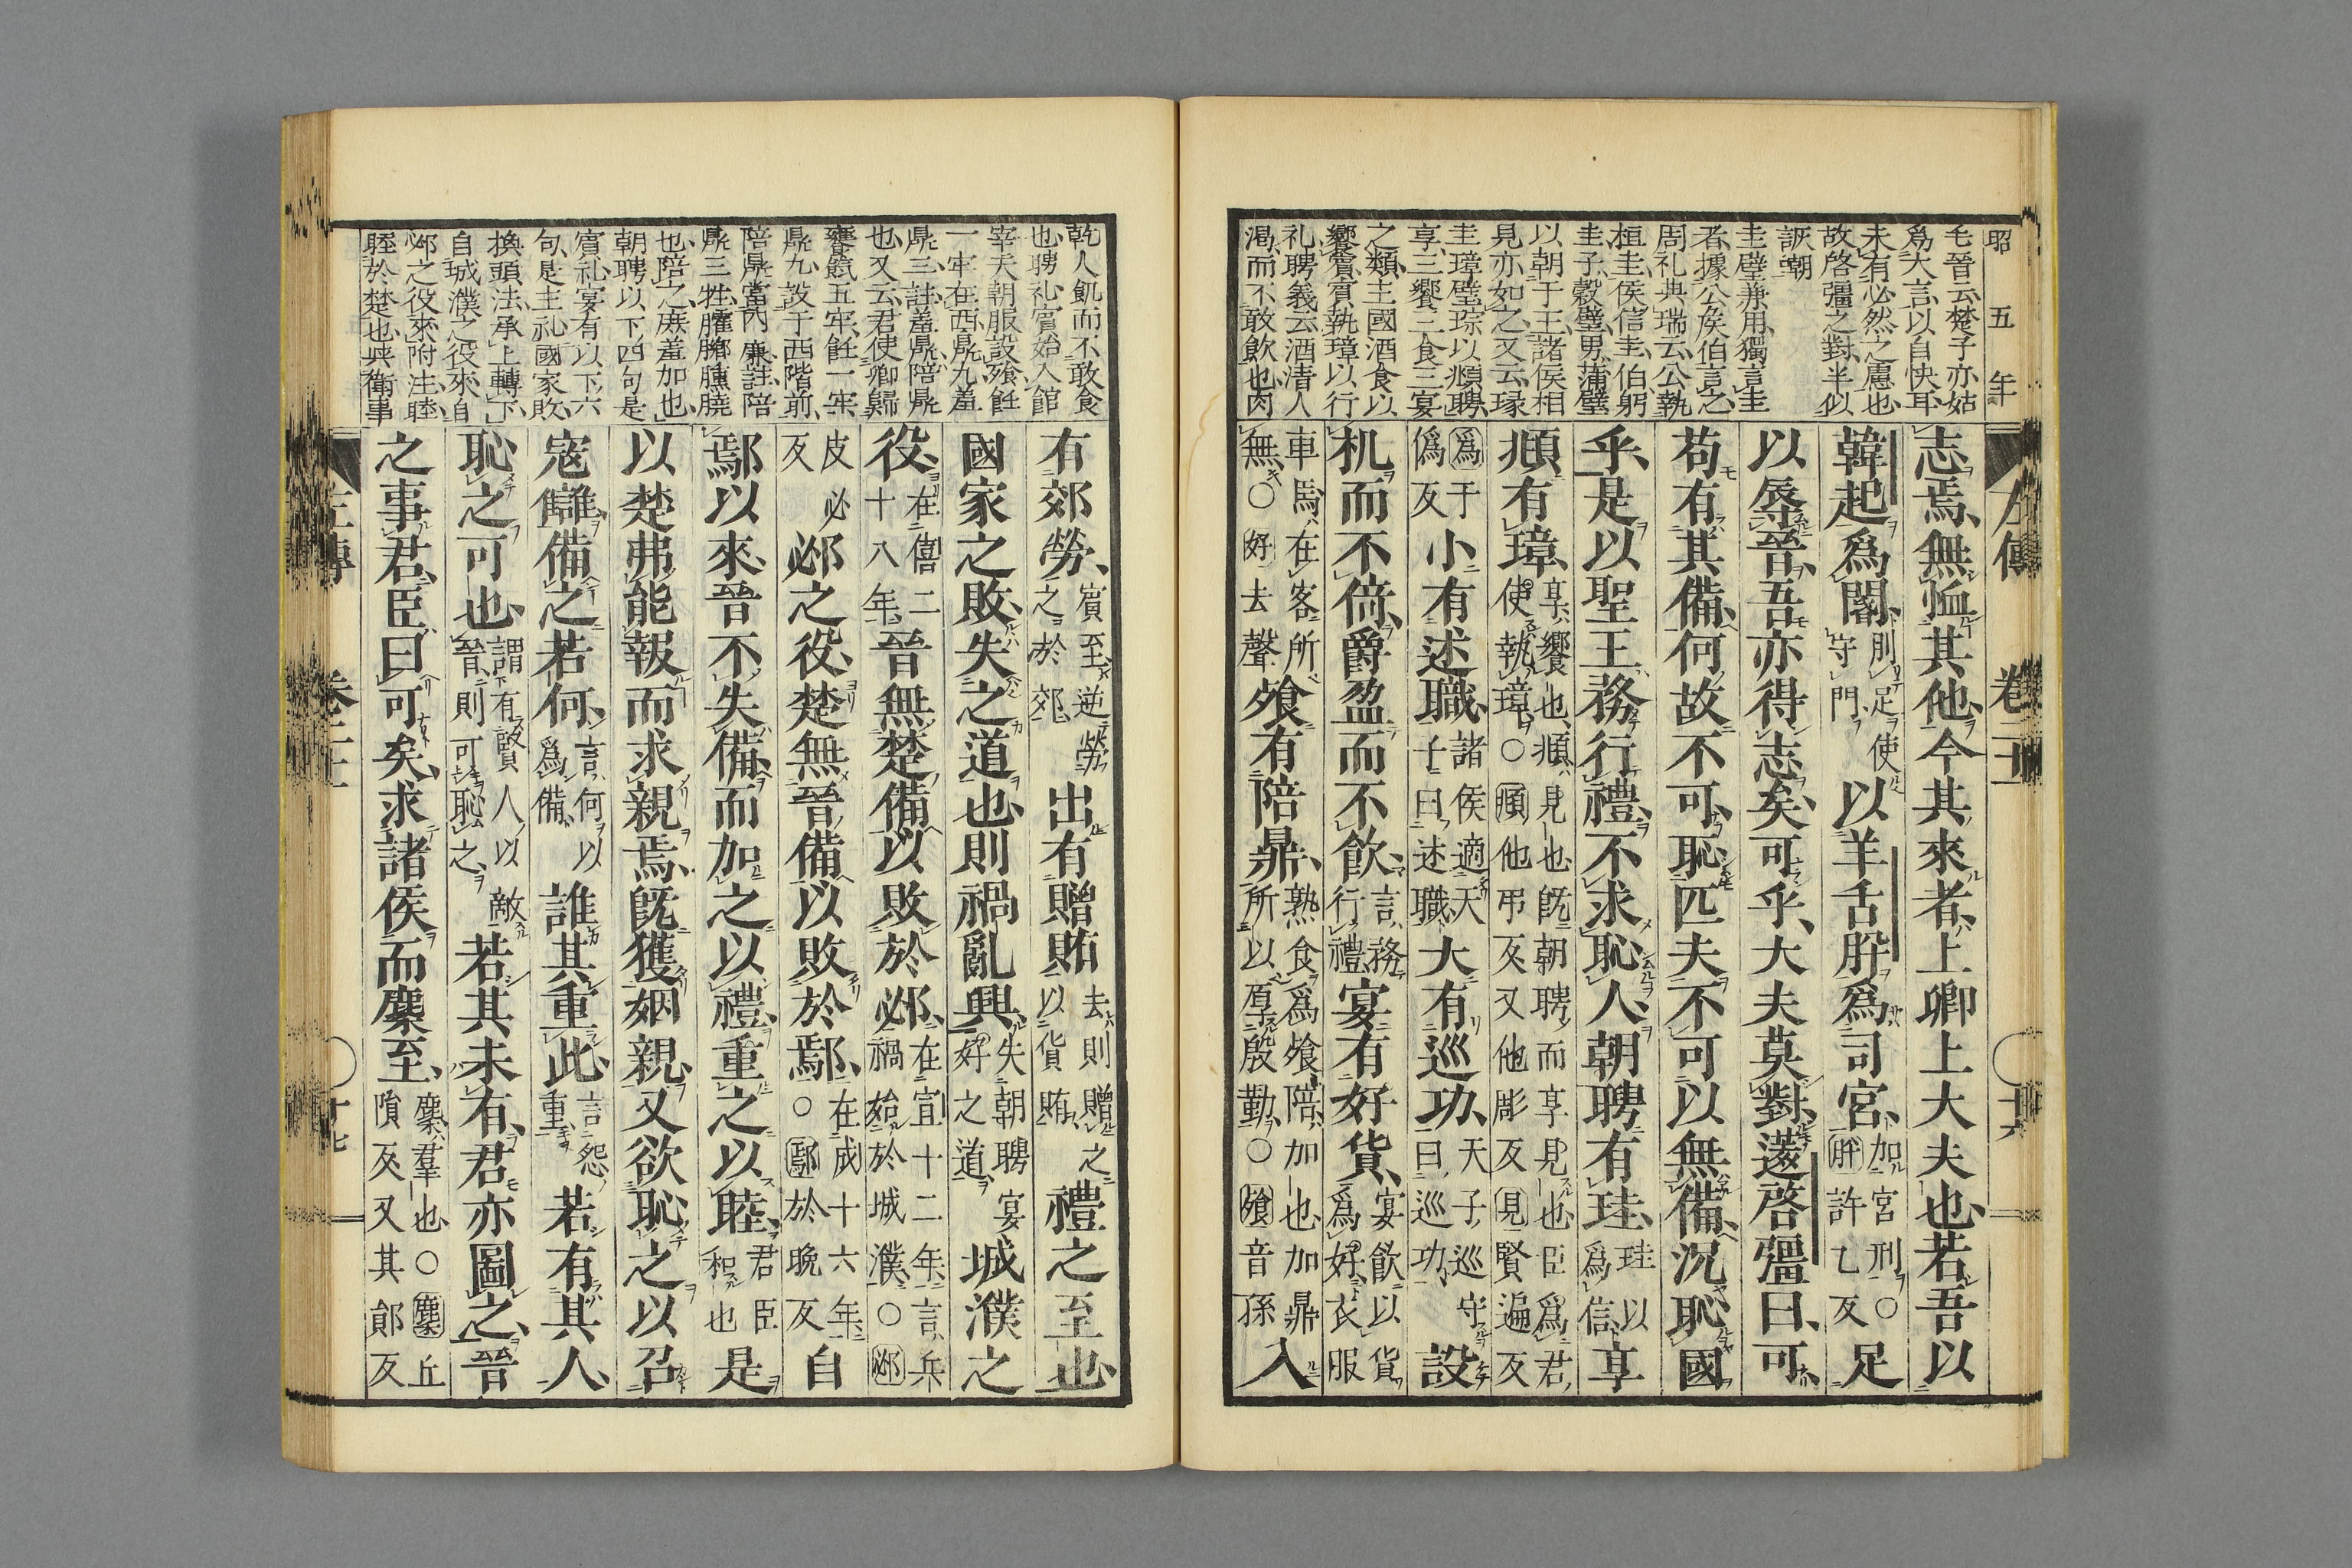 昭五年
毛晉云楚子亦姑
爲大言以自快耳
未有必然之慮也
故啓彊之對半似
詼謿
圭璧兼用獨言圭
者據公侯伯言之
周礼典瑞云公執
桓圭侯信圭伯躬
圭子穀璧男蒲璧
以朝于王諸侯相
見亦如之又云瑑
圭璋璧琮以頫聘
享三饗三食三宴
之類主國酒食以
饗賓賓執璋以行
礼聘義云酒清人
渴而不敢飲也肉
左傳 卷二十一 ○ 十六
志焉無恤其他今其來者上卿上大夫也若吾以
韓起爲閽刖足使守門以羊舌肸爲司宮加宮刑○肸許乙反足
以辱晉吾亦得志矣可乎大夫莫對薳啓彊曰可
苟有其備何故不可恥匹夫不可以無備況恥國
乎是以聖王務行禮不求恥人朝聘有珪珪以爲信享
頫有璋享饗也頫見也旣朝聘而享見也臣爲君使執璋○頫他弔反又他彫反見賢遍反
爲于僞反小有述職諸侯適天子曰述職大有巡功天子巡守曰巡功設
机而不倚爵盈而不飲言務行禮宴有好貨宴飲以貨爲好衣服
車馬在客所無○好去聲飧有陪鼎熟食爲飧陪加也加鼎所以厚殷勤○飧音孫入
乾人飢而不敢食
也聘礼賓始入館
宰夫朝服設飧飪
一牢在西鼎九羞
鼎三註羞鼎陪鼎
也又云君使卿歸
饔餼五牢飪一牢
鼎九設于西階前
陪鼎當內廉註陪
鼎三牲臛膷臐膮
也陪之庶羞加也
朝聘以下四句是
賓礼宴有以下六
句是主礼國家敗
換頭法承上轉下
自城濮之役來自
邲之役來附注睦
睦於楚也與衛事
有郊勞賓至逆勞之於郊出有贈賄去則贈之以貨賄禮之至也
國家之敗失之道也則禍亂興失朝聘宴好之道城濮之
役在僖二十八年晉無楚備以敗於邲在宣十二年言兵禍始於城濮○邲
皮必反邲之役楚無晉備以敗於鄢在成十六年○鄢於晚反自
鄢以來晉不失備而加之以禮重之以睦君臣和也是
以楚弗能報而求親焉旣獲姻親又欲恥之以召
寇讎備之若何言何以爲備誰其重此言怨重若有其人
恥之可也謂有賢人以敵晉則可恥之若其未有君亦圖之晉
之事君臣曰可矣求諸侯而麇至麇羣也○麇丘隕反又其郧反
左傳 卷二十一 ○ 十七